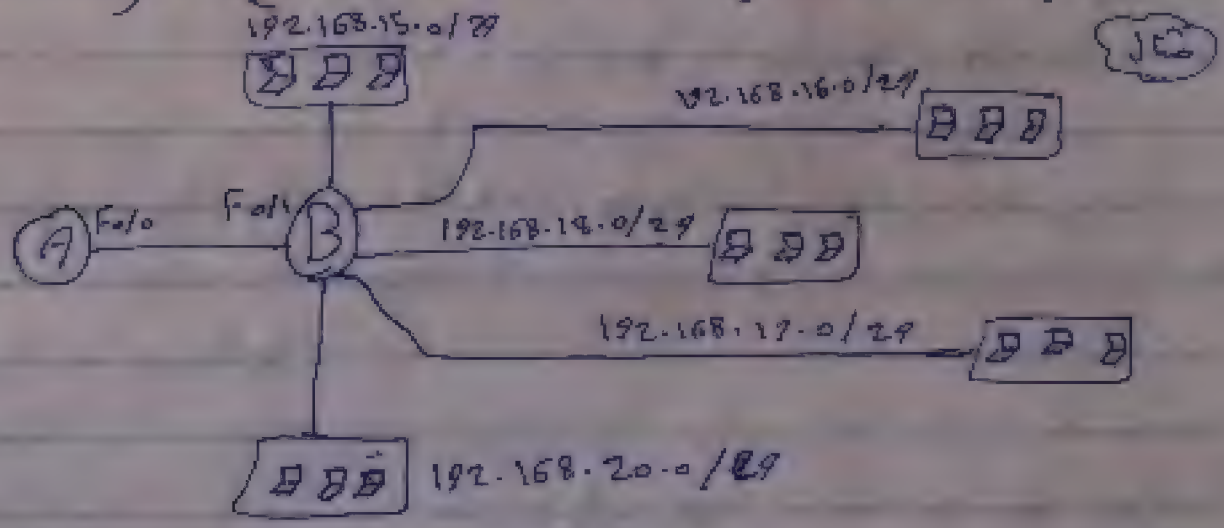 192.168.15.0/29
JC
192.168.16.0/29
A
F0/0
F0/1
B
192.168.18.0/29
192.168.17.0/29
192.168.20.0/29